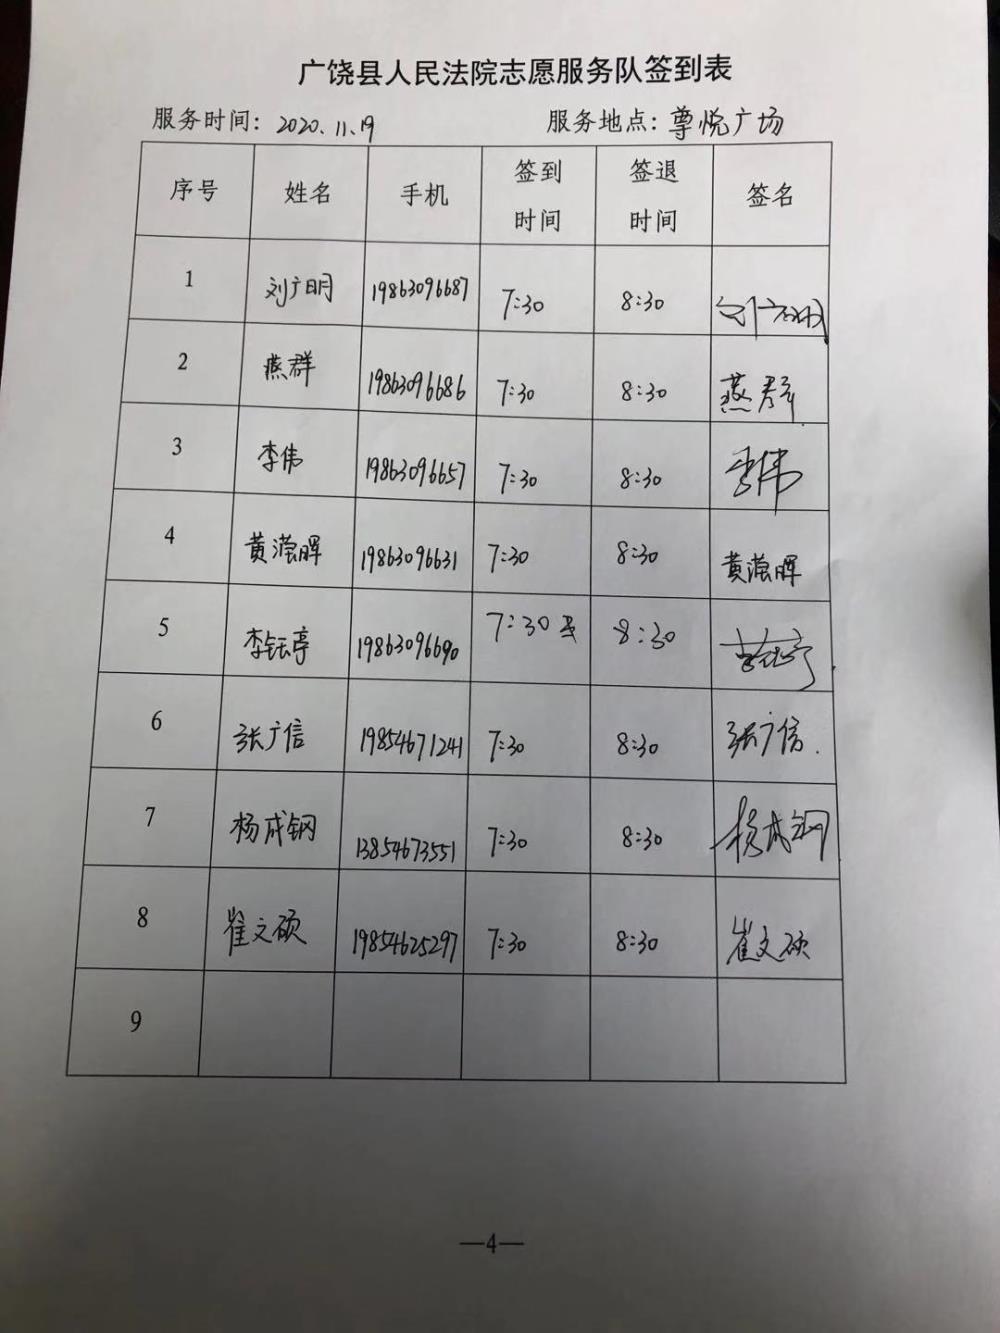 广饶县人民法院志愿服务队签到表
服务时间：2020.11.19 服务地点：尊悦广场
序号 姓名 手机 签到时间 签退时间 签名
1 刘广明 19863096687 7:30 8:30 刘广明
2 燕群 19863096686 7:30 8:30 燕群
3 李伟 19863096657 7:30 8:30 李伟
4 黄滢晖 19863096631 7:30 8:30 黄滢晖
5 李钰亭 19863096690 7:30 8:30
6 张广信 19854671241 7:30 8:30 张广信.
7 杨成钢 13854673551 7:30 8:30 杨成钢
8 崔文硕 19854625297 7:30 8:30 崔文硕
9
—4—